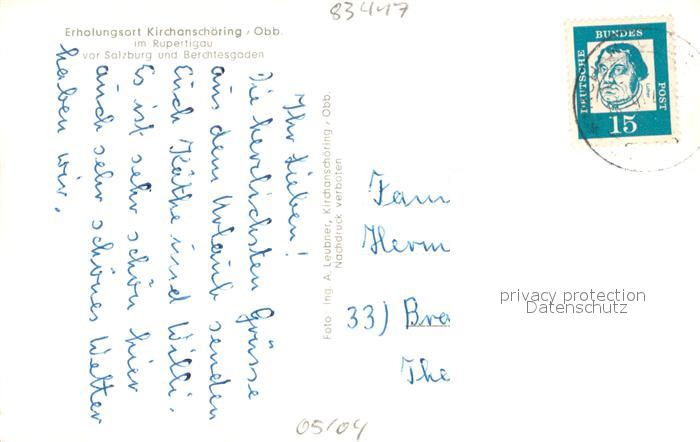 83417
Erholungsort Kirchanschöring / Obb.
im Rupertigau
vor Salzburg und Berchtesgaden
Ihr Lieben!
Die herzlichsten Grüsse
aus dem Urlaub senden
Euch Käthe und Willi.
Es ist sehr schön hier
auch sehr schönes Wetter
haben wir.
Foto Ing. A. Leubner, Kirchanschöring / Obb.
Nachdruck verboten
DEUTSCHE
BUNDES
POST
Luther
15
Fam
Herm
33) Bra
The
privacy protection
Datenschutz
05/04